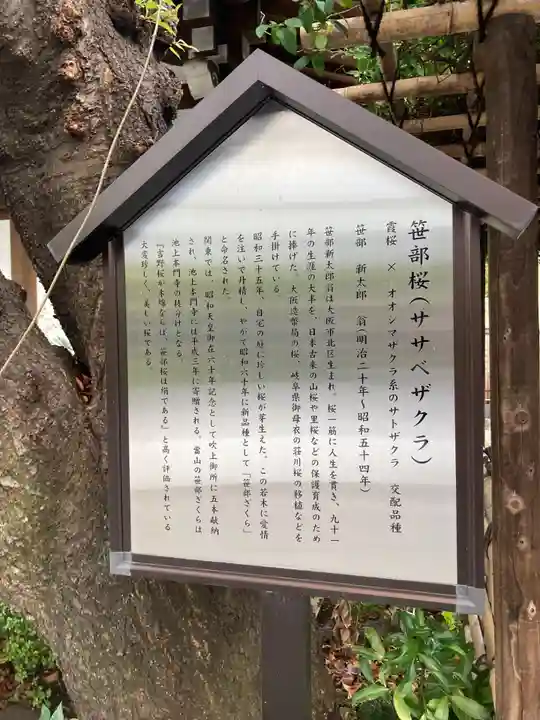 笹部桜(ササベザクラ)
霞桜 × オオシマザクラ系のサトザクラ 交配品種
笹部 新太郎 翁(明治二十年~昭和五十四年)
笹部新太郎翁は大阪市北区生まれ。桜一筋に人生を貫き、九十一
年の生涯の大半を、日本古来の山桜や里桜などの保護育成のため
に捧げた。大阪造幣局の桜、岐阜県御母衣の荘川桜の移植などを
手掛けている。
昭和三十五年、自宅の庭に珍しい桜が芽生えた。この若木に愛情
を注いで丹精し、やがて昭和六十年に新品種として「笹部ざくら」
と命名された。
関東では、昭和天皇御在六十年記念として吹上御所に五本献納
され、池上本門寺には平成三年に寄贈される。當山の笹部ざくらは
池上本門寺の枝分けとなる。
『吉野桜が木綿ならば、笹部桜は絹である』と高く評価されている
大変珍しく、美しい桜である。